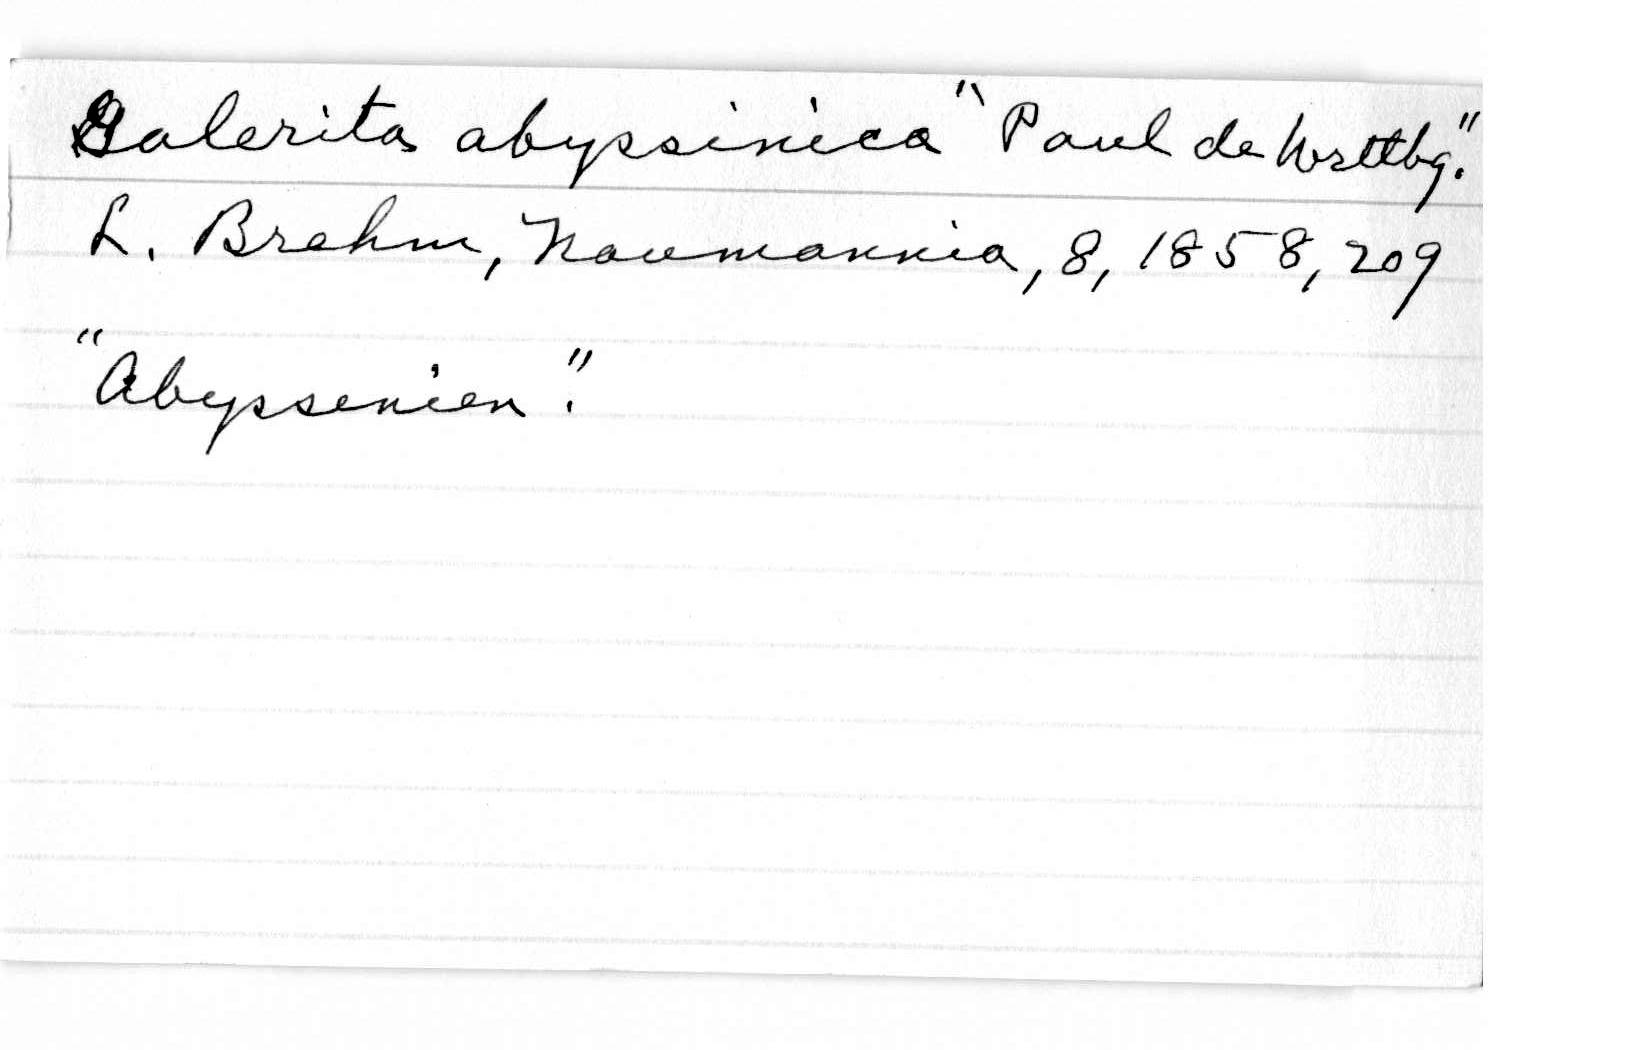 Galerita abyssinica "Paul de Wrttbg."
L. Brehm, Naumannia, 8, 1858, 209
"Abyssenien".